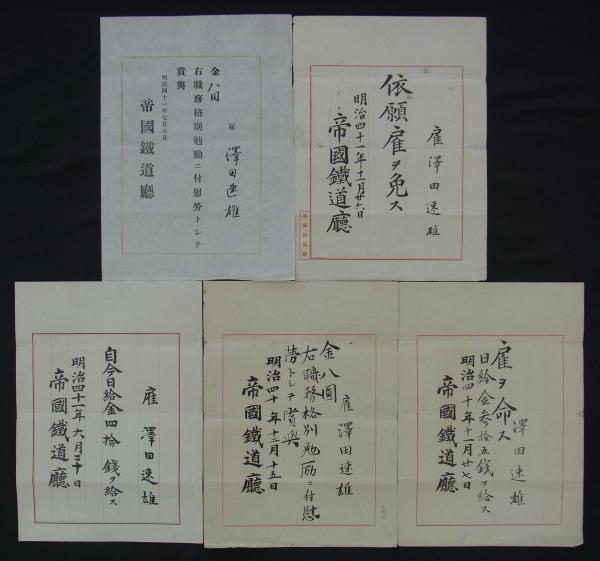 雇
澤田速雄
金八円
右職務格別勉励ニ付慰勞トシテ
賞與
明治四十一年七月六日
帝國鐵道廳
雇澤田速雄
依願雇ヲ免ス
明治四十一年十一月廿六日
帝國鐵道廳
雇 澤田速雄
自今日給金四拾錢ヲ給ス
明治四十一年六月三十日
帝國鐵道廳
金八圓
雇 澤田速雄
右職務格別勉励ニ付慰
勞トシテ賞與
明治四十年十二月十五日
帝國鐵道廳
澤田速雄
雇ヲ命ス
日給金参拾五錢ヲ給ス
明治四十年十一月廿七日
帝國鐵道廳